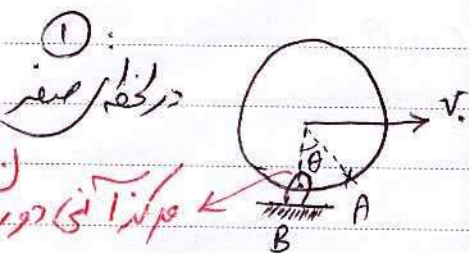 ① :
در لحظه‌ی صفر
V.
θ
مرکز آنی دوران
A
B